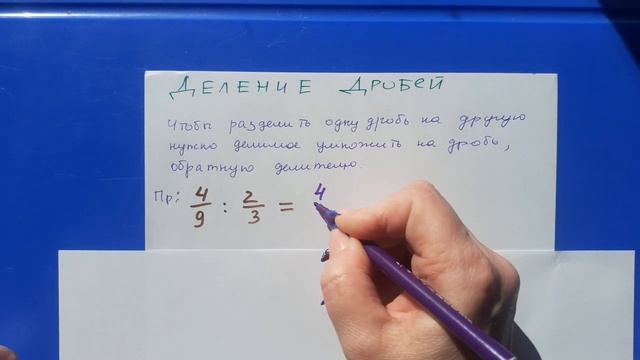 Деление дробей
Чтобы разделить одну дробь на другую
нужно делимое умножить на дробь,
обратную делителю.
Пр: 4/9 : 2/3 = 4